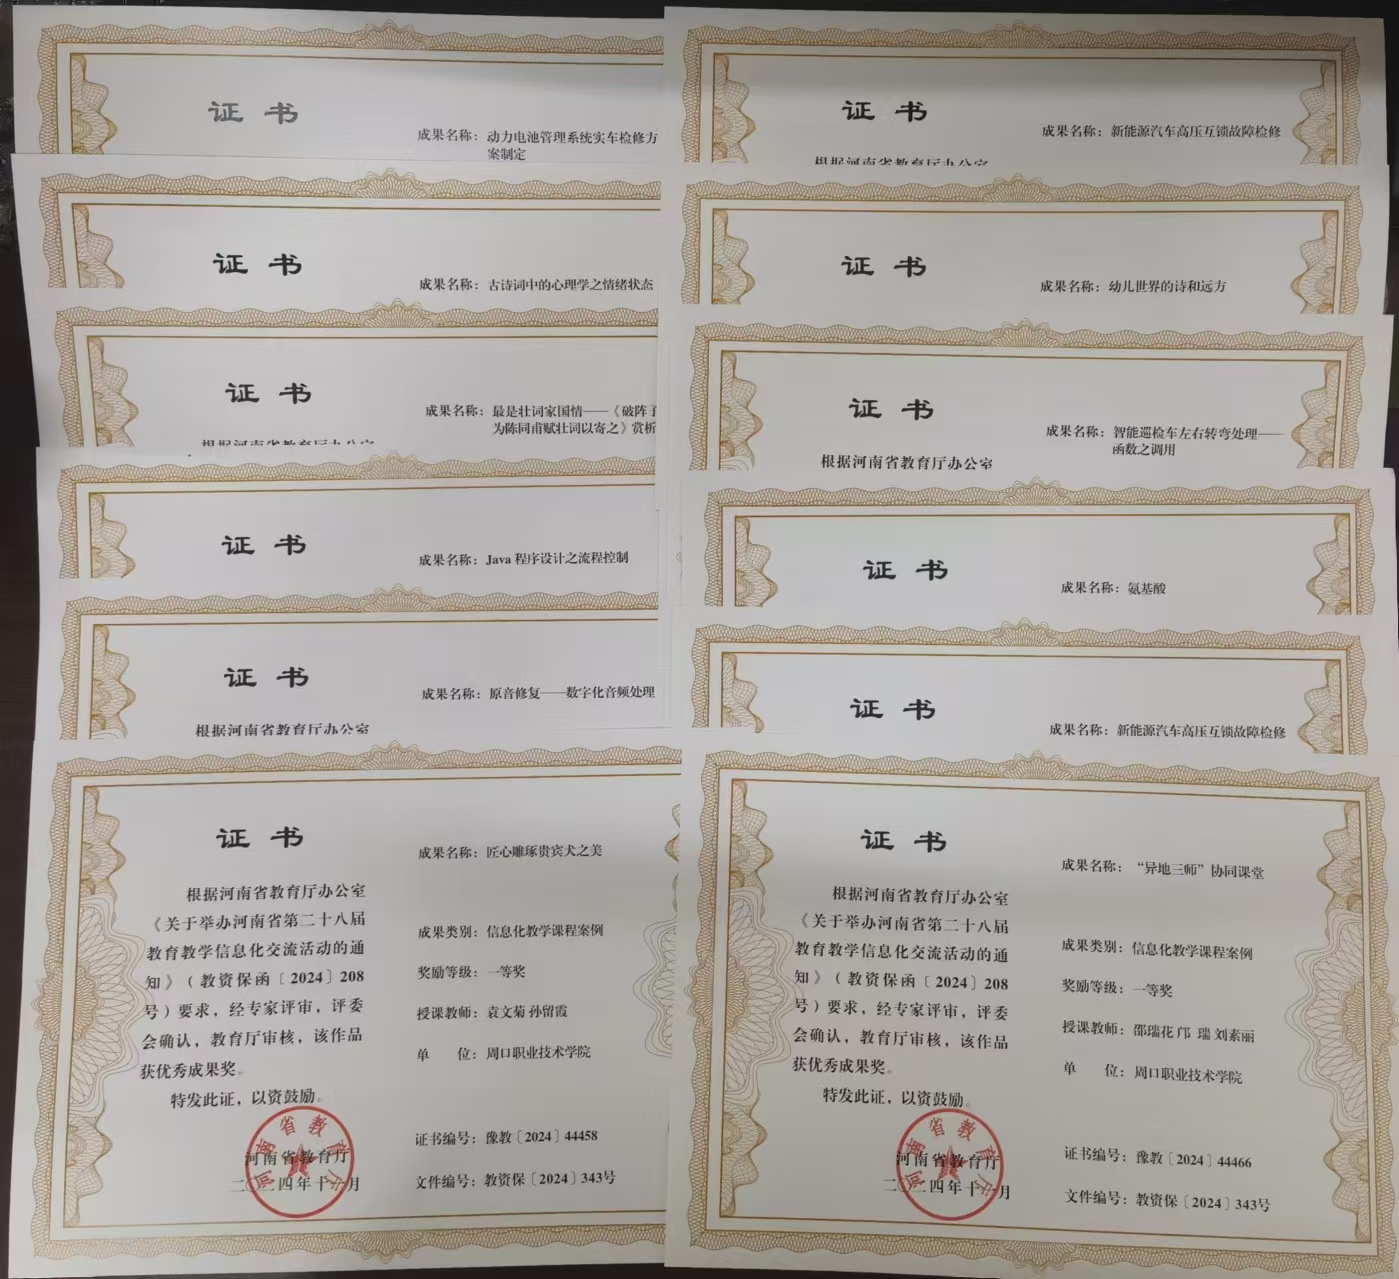 证 书
成果名称：动力电池管理系统实车检修方
案制定
证 书
成果名称：古诗词中的心理学之情绪状态
证 书
成果名称：最是壮词家国情——《破阵子
为陈同甫赋壮词以寄之》赏析
根据河南省教育厅办公室
证 书
成果名称：Java 程序设计之流程控制
证 书
成果名称：原音修复——数字化音频处理
根据河南省教育厅办公室
证 书
成果名称：匠心雕琢贵宾犬之美
根据河南省教育厅办公室
《关于举办河南省第二十八届
教育教学信息化交流活动的通
知》（教资保函〔2024〕208
号）要求，经专家评审，评委
会确认，教育厅审核，该作品
获优秀成果奖。
特发此证，以资鼓励。
河南省教育厅
河南省教育厅
二〇二四年十一月
成果类别：信息化教学课程案例
奖励等级：一等奖
授课教师：袁文菊 孙留霞
单 位：周口职业技术学院
证书编号：豫教〔2024〕44458
文件编号：教资保〔2024〕343号
证 书
成果名称：新能源汽车高压互锁故障检修
根据河南省教育厅办公室
证 书
成果名称：幼儿世界的诗和远方
证 书
成果名称：智能巡检车左右转弯处理——
函数之调用
根据河南省教育厅办公室
证 书
成果名称：氨基酸
证 书
成果名称：新能源汽车高压互锁故障检修
证 书
成果名称：“异地三师”协同课堂
根据河南省教育厅办公室
《关于举办河南省第二十八届
教育教学信息化交流活动的通
知》（教资保函〔2024〕208
号）要求，经专家评审，评委
会确认，教育厅审核，该作品
获优秀成果奖。
特发此证，以资鼓励。
河南省教育厅
河南省教育厅
二〇二四年十一月
成果类别：信息化教学课程案例
奖励等级：一等奖
授课教师：邵瑞花 邝 瑞 刘素丽
单 位：周口职业技术学院
证书编号：豫教〔2024〕44466
文件编号：教资保〔2024〕343号